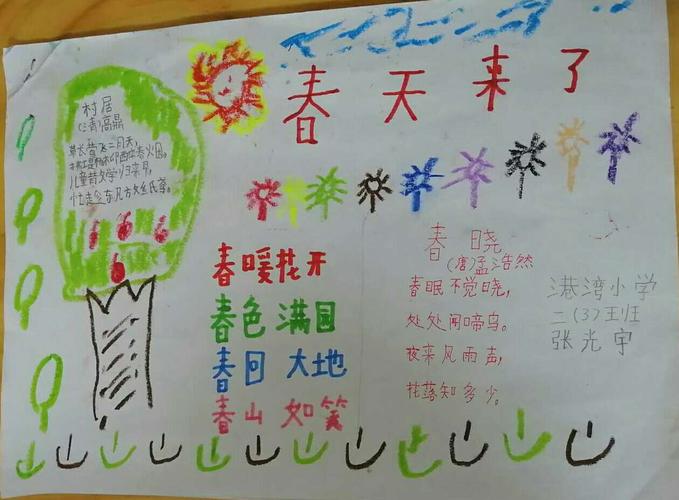 春天来了
村居
(清)高鼎
草长莺飞二月天,
儿童散学归来早,
春暖花开
春色满园
春回大地
春山如笑
春晓
(唐)孟浩然
春眠不觉晓,
处处闻啼鸟。
夜来风雨声,
花落知多少。
港湾小学
二(3)班
张光宇